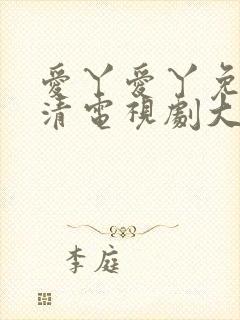 愛丫愛丫免
清電視劇大
李庭